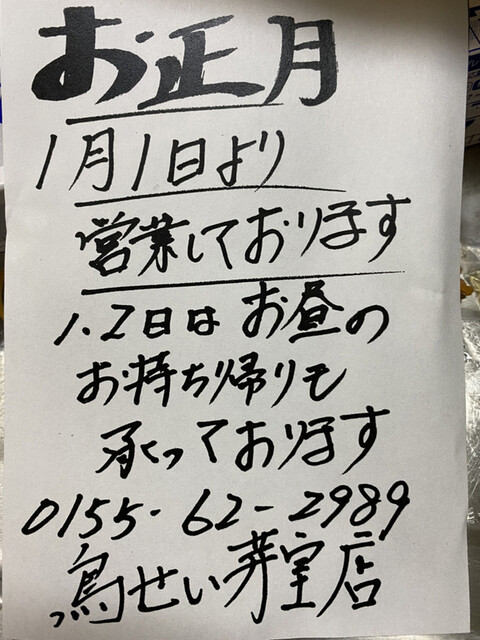 お正月
1月1日より
営業しております
1.2日はお昼の
お持ち帰りも
承っております
0155-62-2989
鳥せい芽室店